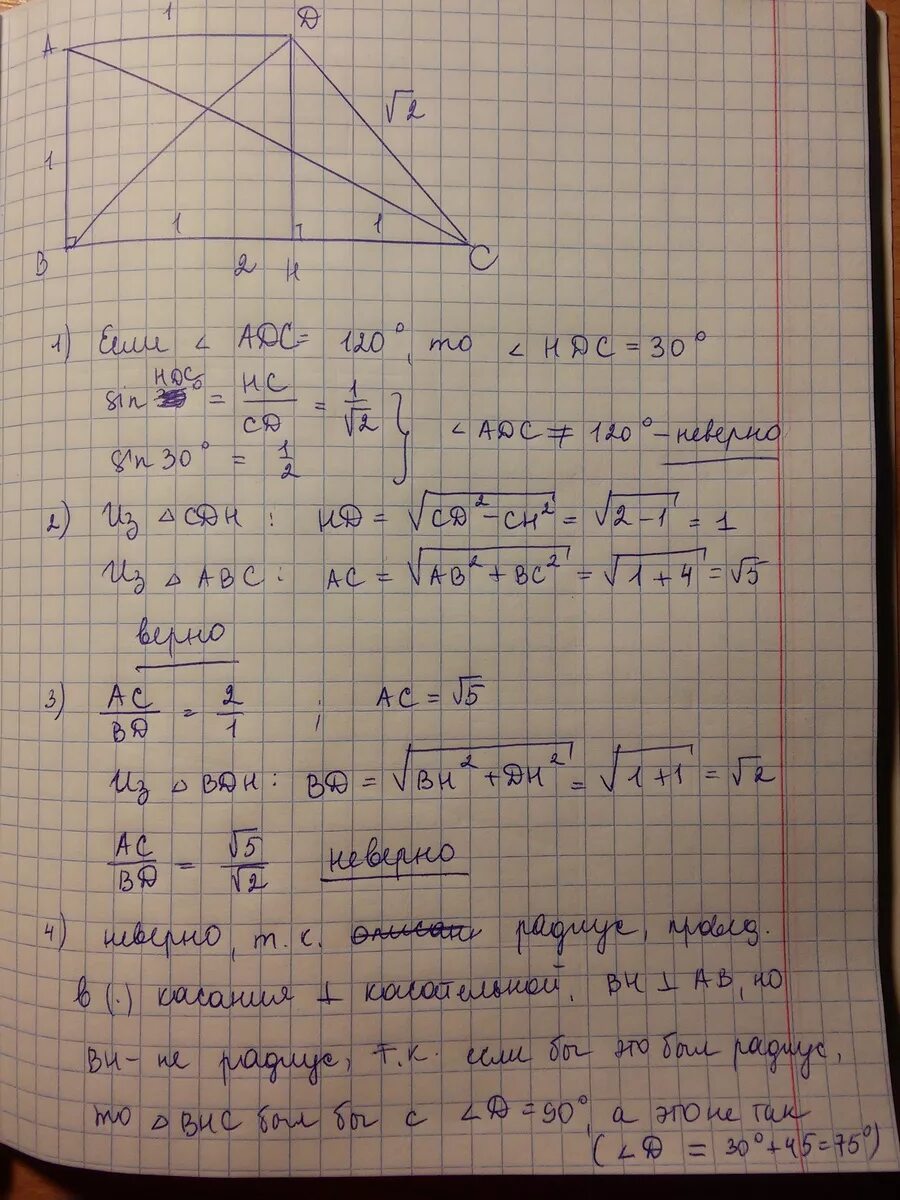 1
A D
√2
1
1 1
B 2 H C
1) Если ∠ ADC = 120°, то ∠ HDC = 30°
sin HDC = HC/CD = 1/√2
∠ ADC ≠ 120° - неверно
sin 30° = 1/2
2) Из △ CDH : HD = √(CD² - CH²) = √(2-1) = 1
Из △ ABC : AC = √(AB² + BC²) = √(1+4) = √5
верно
3) AC/BD = 2/1 ; AC = √5
Из △ BDH : BD = √(BH² + DH²) = √(1+1) = √2
AC/BD = √5/√2 неверно
4) неверно, т.к. радиус, провед.
в (·) касания ⊥ касательной. BH ⊥ AB, но
BH - не радиус, т.к. если бы это был радиус,
то △ BHC был бы с ∠D = 90°, а это не так
(∠D = 30° + 45 = 75°)